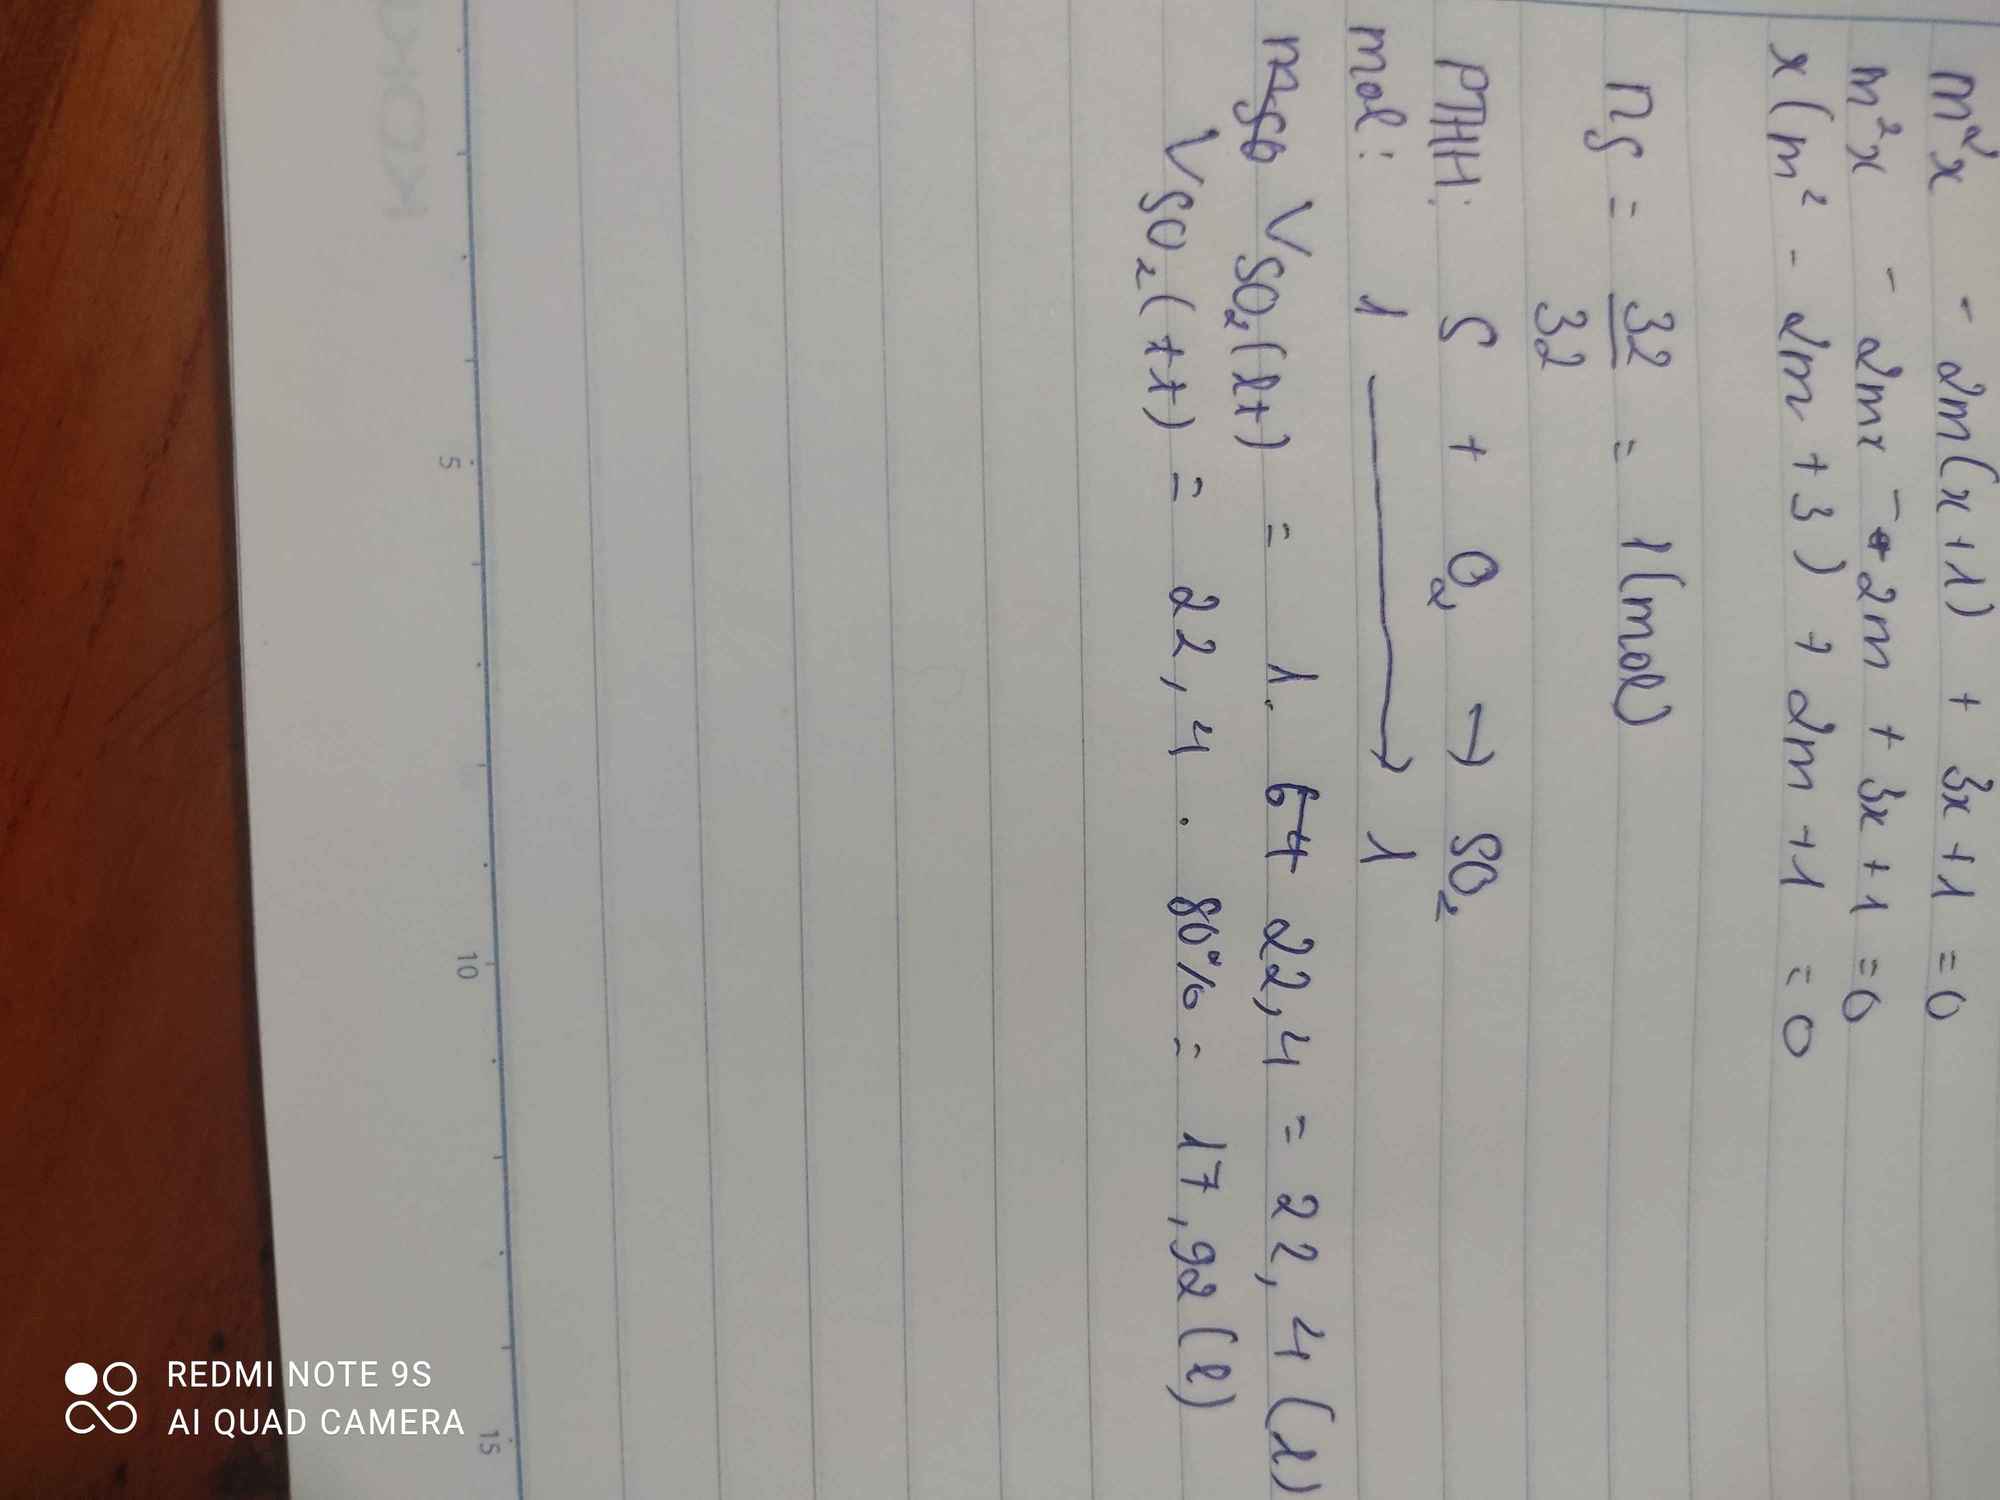 m²x - 2m(x+1) + 3x+1 = 0
m²x - 2mx - 2m + 3x+1 = 0
x(m² - 2m +3) + 2m +1 = 0
nS = 32/32 = 1(mol)
PTHH: S + O₂ → SO₂
mol: 1 → 1
VSO₂(lt) = 1. 64 22,4 = 22,4 (l)
VSO₂(tt) = 22,4 . 80% = 17,92 (l)
KOKU
5
10
15
REDMI NOTE 9S
AI QUAD CAMERA